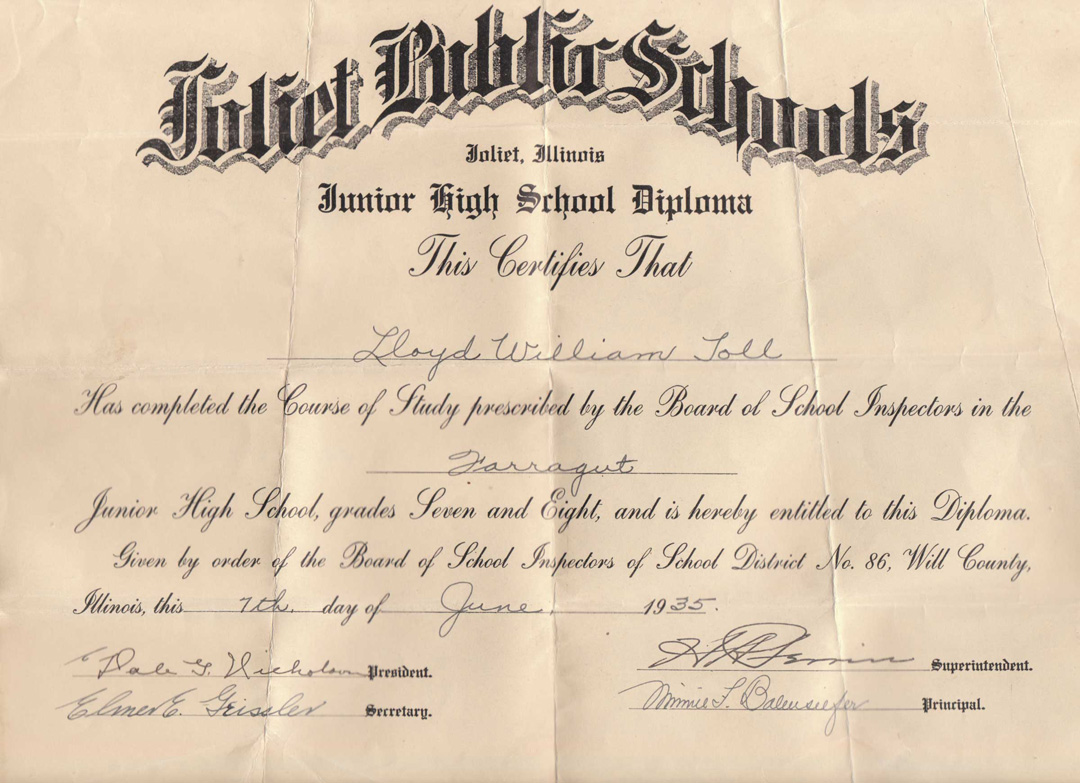 Joliet Public Schools
Joliet, Illinois
Junior High School Diploma
This Certifies That
Lloyd William Toll
Has completed the Course of Study prescribed by the Board of School Inspectors in the
Farragut
Junior High School, grades Seven and Eight, and is hereby entitled to this Diploma.
Given by order of the Board of School Inspectors of School District No. 86, Will County,
Illinois, this 7th. day of June, 1935.
Dale G. Nicholson President.
Superintendent.
Elmer E. Grissler Secretary.
Minnie F. Balensiefer Principal.